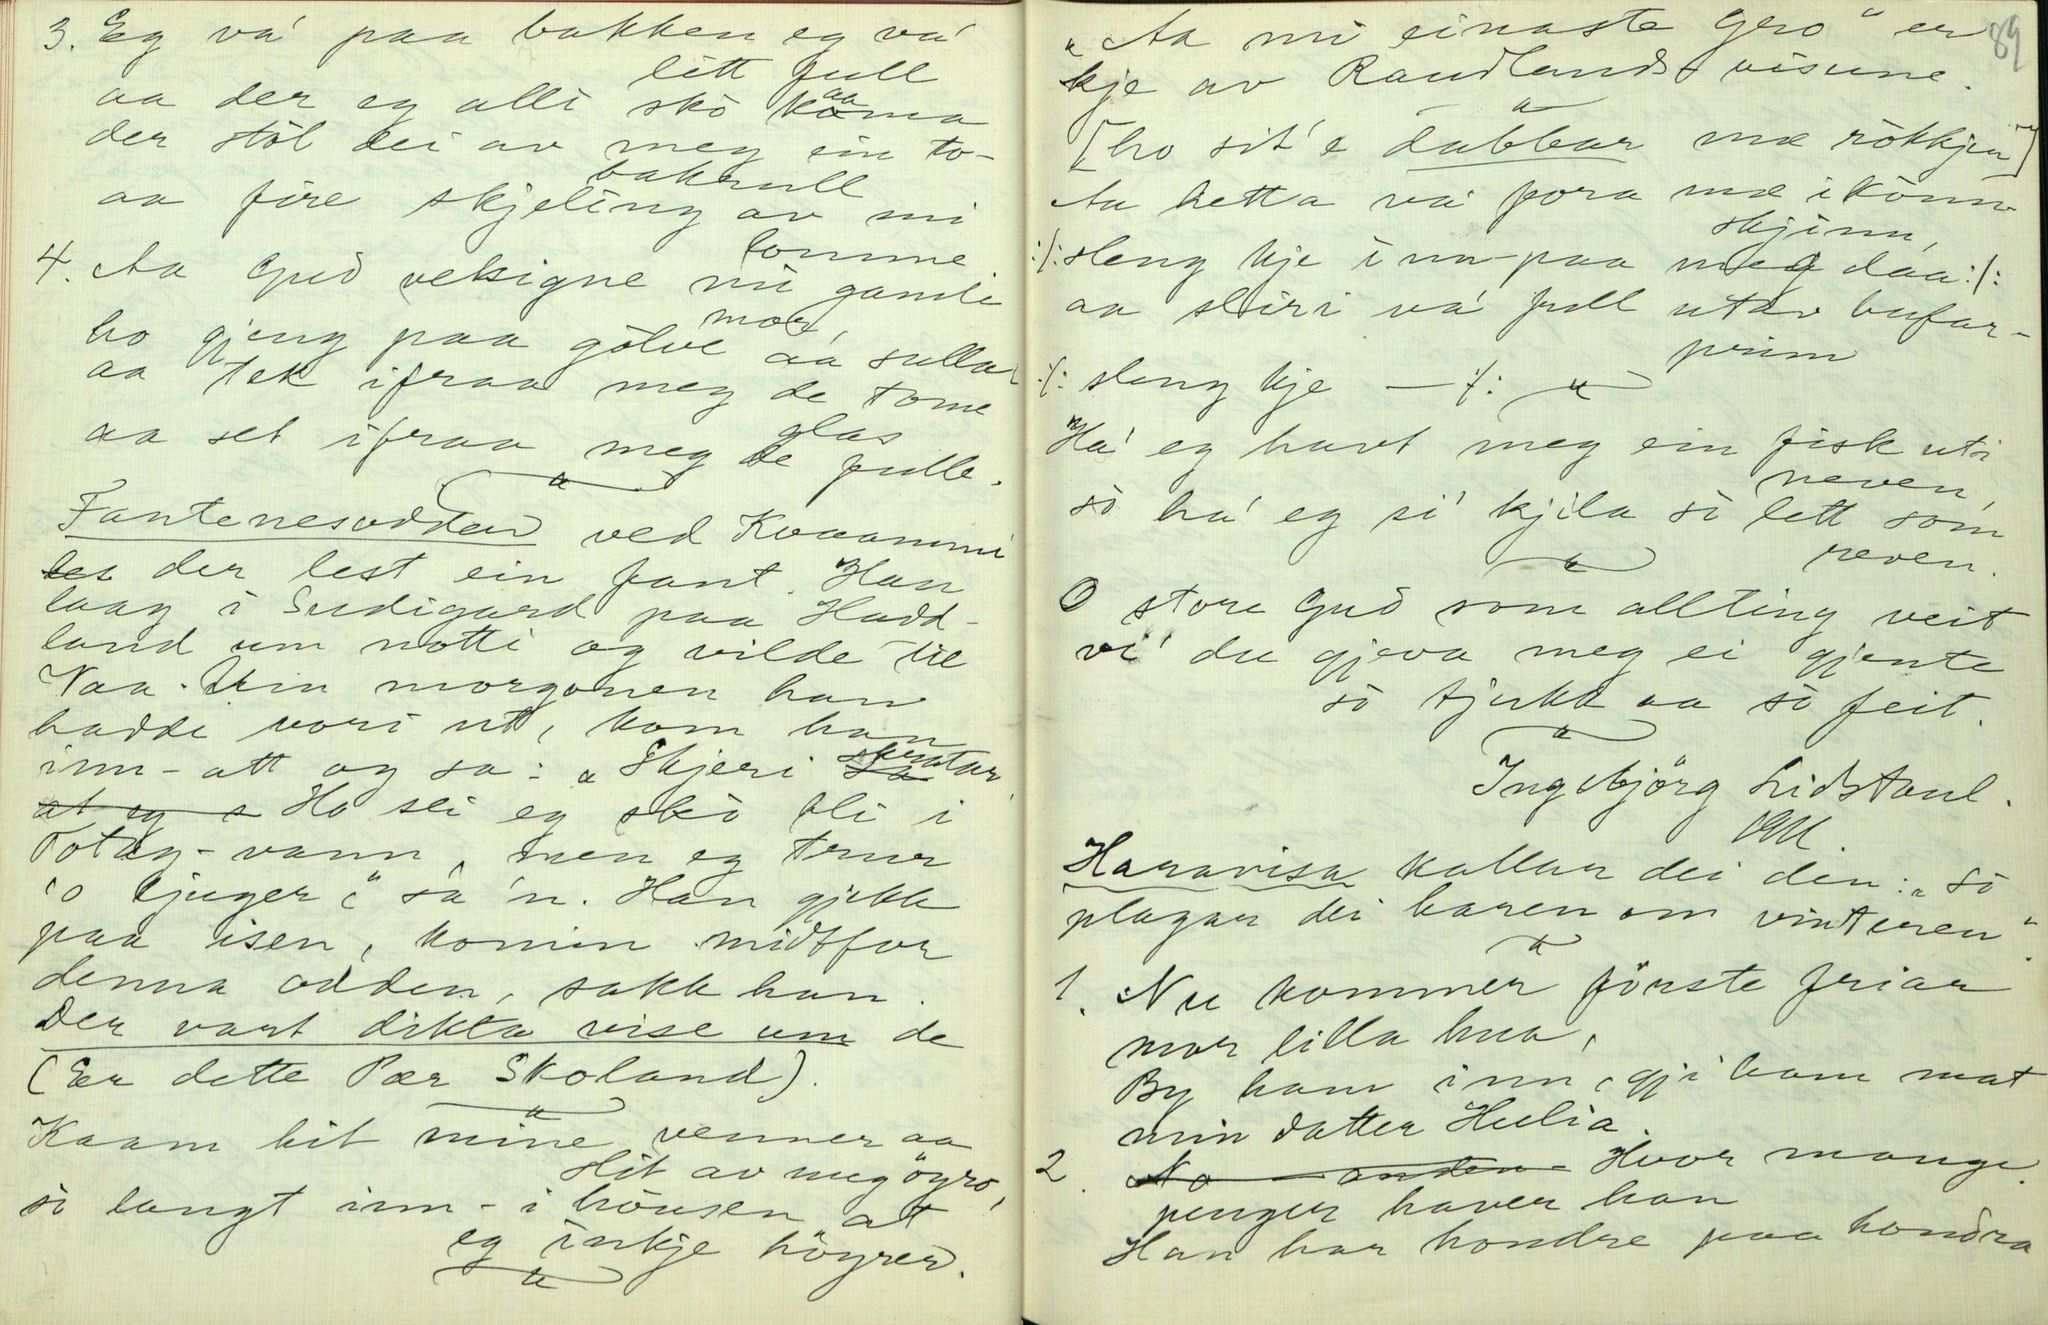 3. Eg va' paa bakken eg va'
litt full
aa der eg alli sko koma
aa
der stol dei av meg ein to-
bakrull
aa fire skjeling av mi
lomme
4. Aa Gud velsigne mi gamle
mor,
ho gjeng paa golve aa sulla
aa tek ifraa meg de tome
glas
aa set ifraa meg de fulle.
Fantenesodden ved Kvaammi
der lest ein fant. Han
laag i Sudigard paa Hadd-
land um notti og vilde til
Naa. Um morgonen han
haddi vori ut, kom han
inn-att og sa: "Skjeri skratar
at eg s Ho sei eg sko bli i
Totak-vann, men eg trur
'o ljuger," sa 'n. Han gjekk
paa isen, komin midtfor
denna odden, sakk han.
Der vart dikta vise um de
(Er dette Pær Skoland).
Kaam hit mine venner aa
slit av meg öyro,
so langt inn-i hausen at
eg inkje höyrer.
89
"Aa mi einaste Gro" er
kje av Raudlands visune.
[ho sit 'e dabbar mæ rokkjen]
Aa hetta va' fora mæ ikonn-
skjinn,
:/: sleng kje inn-paa meg daa :/:
aa sliri va' full utav bufar-
prim
:/: sleng kje — :/:
Ha' eg havt meg ein fisk uti
neven,
so ha' eg si' kjila so lett som
reven.
O store Gud som allting veit
vi' du gjeva meg ei gjente
so tjukk aa so feit.
Ingebjörg Lidstaul.
Haravisa kallar dei den: "So
plagar dei haren om vinteren".
1. Nu kommer förste friar
mor lilla hua,
By ham inn, gji ham mat
min datter Hulia.
2. No anden Hvor mange
penger haver han
Han har hondre paa hondra